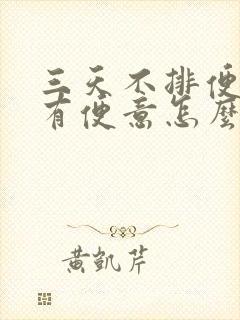 三天不排便
有便意怎麼
黃凱芹